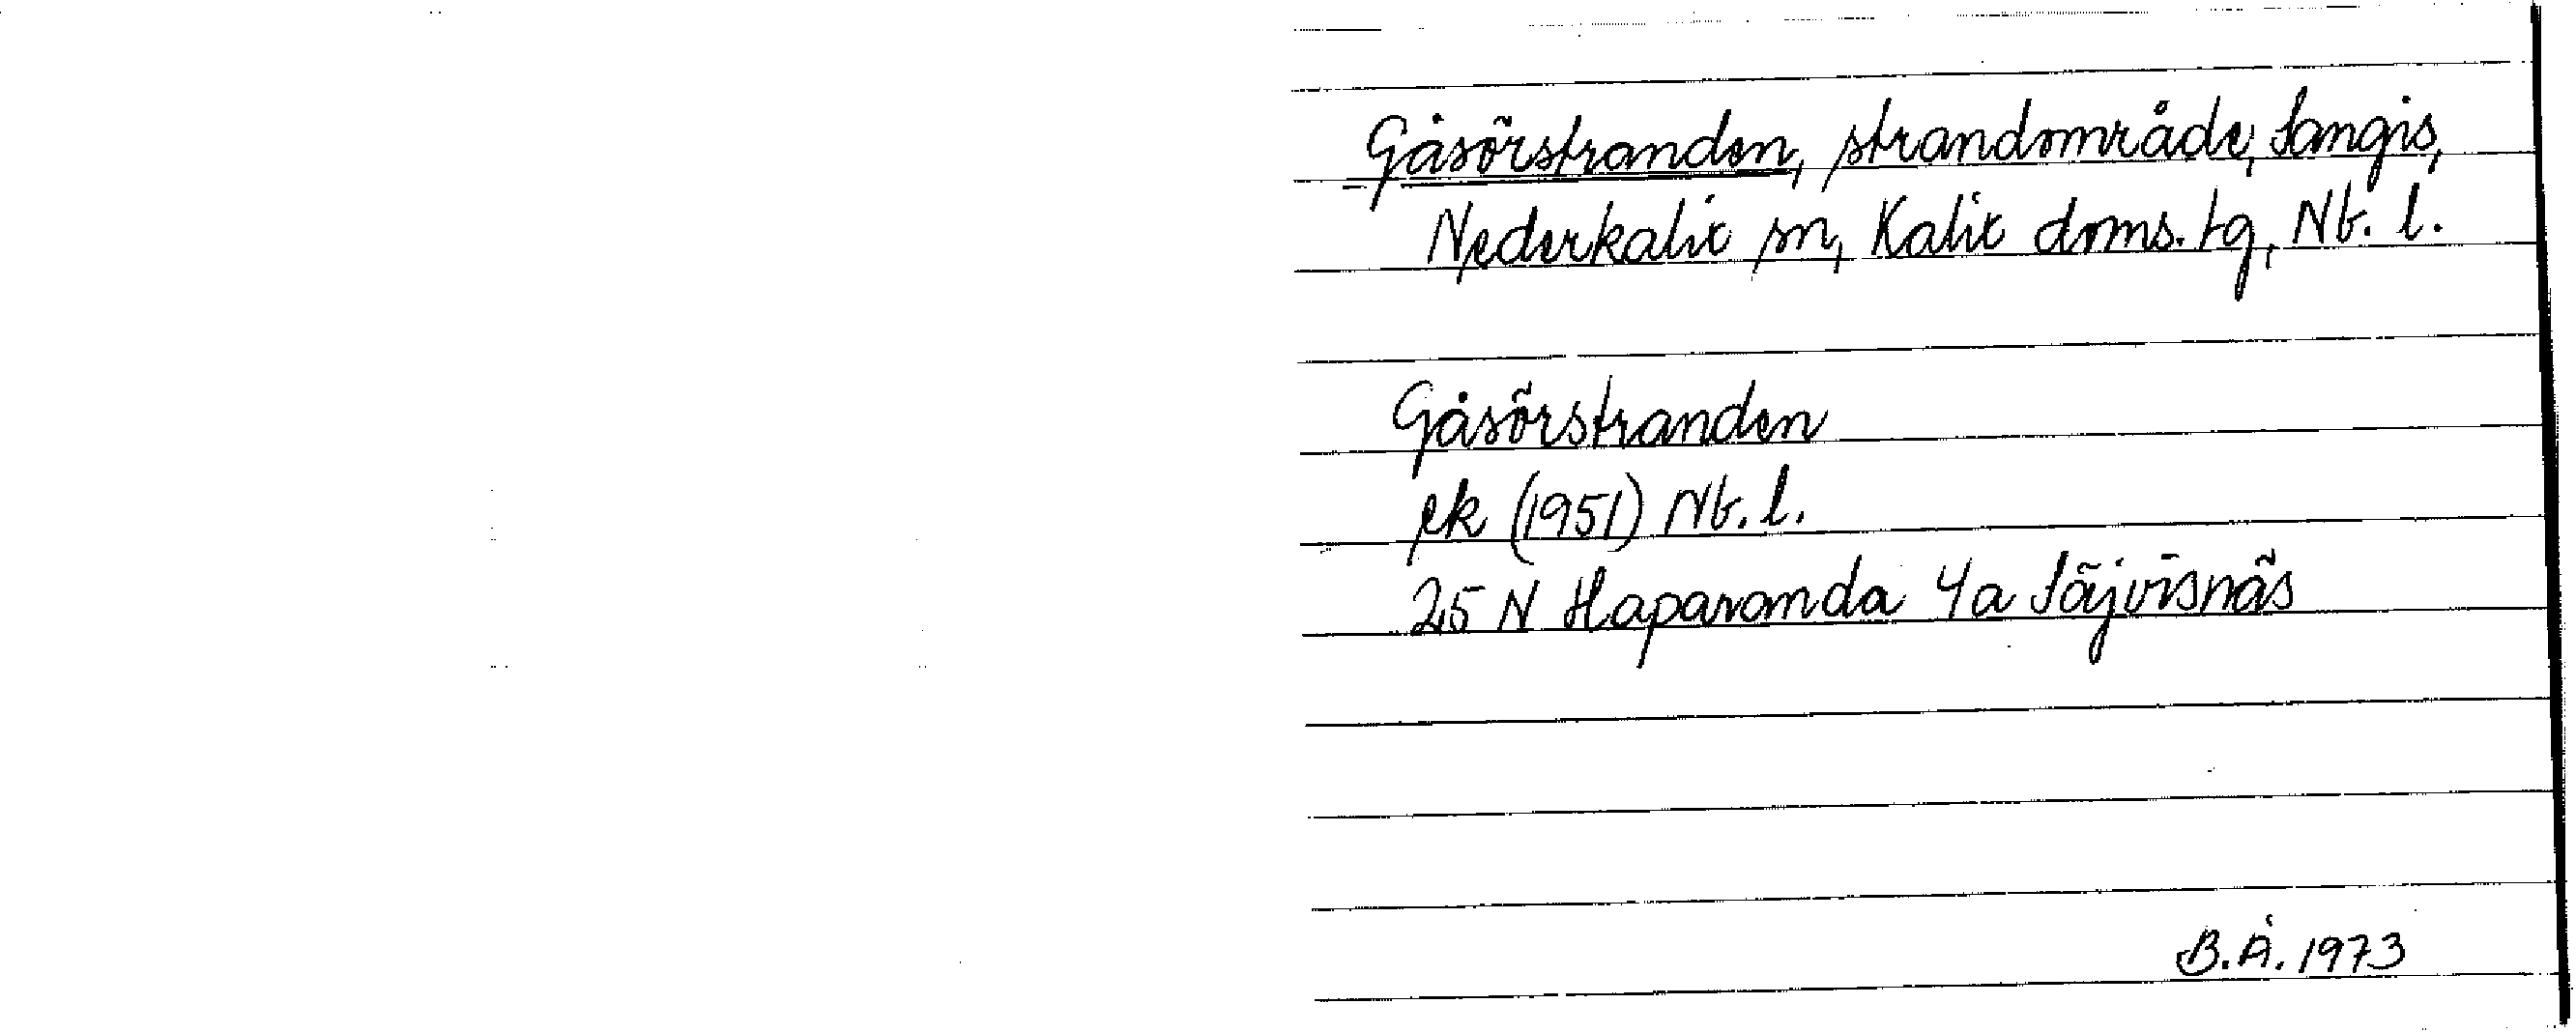 Gåsörstranden, strandområde, Sangis,
Nederkalix sn, Kalix doms. tg, Nb. l.
Gåsörstranden
ek (1951) Nb. l.
25 N Haparanda 4a Säjvisnäs
B.Å. 1973